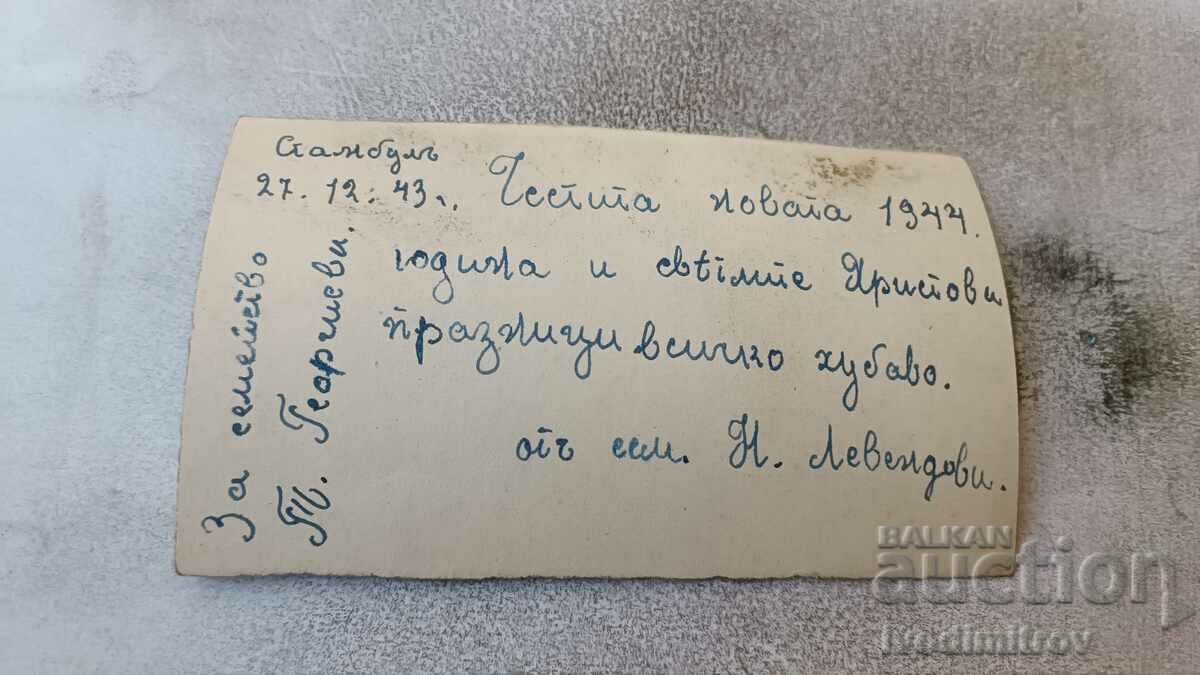 Стамбулъ
27. 12. 43 г.
Честита новата 1944.
година и свѣтлите Христови
празници всичко хубаво.
отъ сем. Н. Левендови.
За семейство
Т. Георгиеви.
BALKAN
auction
ivedimitrov